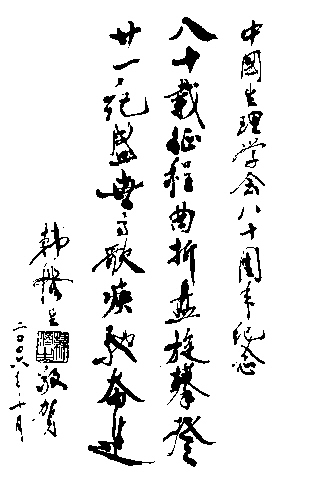 中国生理学会八十周年纪念
八十载征程曲折盘旋攀登
廿一纪盛典高歌疾驰奋进
韩济生 敬贺
二〇〇六年十月